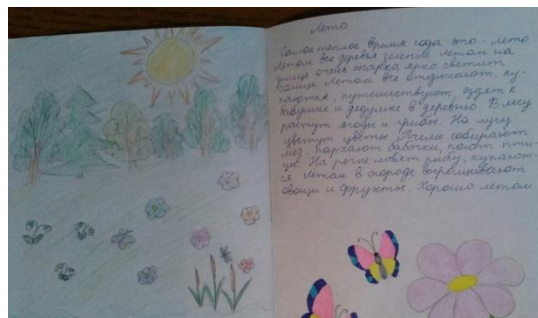 Лето
Самое теплое время года это - лето.
Летом все деревья зеленые. Летом на
улице очень жарко, ярко светит
солнце. Летом все отдыхают, ку-
паются, путешествуют, ездят к
бабушке и дедушке в деревню. В лесу
растут ягоды и грибы. На лугу
цветут цветы. Пчелы собирают
мед, порхают бабочки, поют пти-
цы. На речке ловят рыбу, купают-
ся. Летом в огороде выращивают
овощи и фрукты. Хорошо летом